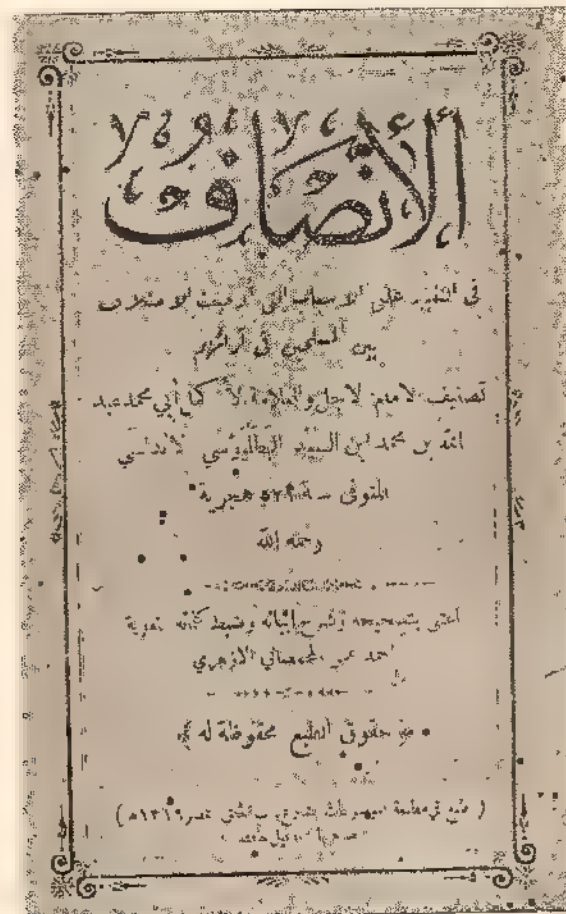 الإنصاف
في التنبيه على الأسباب التي أوجبت الاختلاف
بين المسلمين في آرائهم
تصنيف الامام الاجل والعلامة أبي محمد عبد
الله بن محمد ابن السيد البطليوسي الاندلسي
المتوفى سنة ٥٢١ هجرية
رحمه الله
اعتنى بتصحيحه وشرح أبياته وضبط كلماته اللغوية
احمد عمر المحمصاني الازهري
حقوق الطبع محفوظة له
( طبع في مطبعة بمصر ١٣١٩ه )